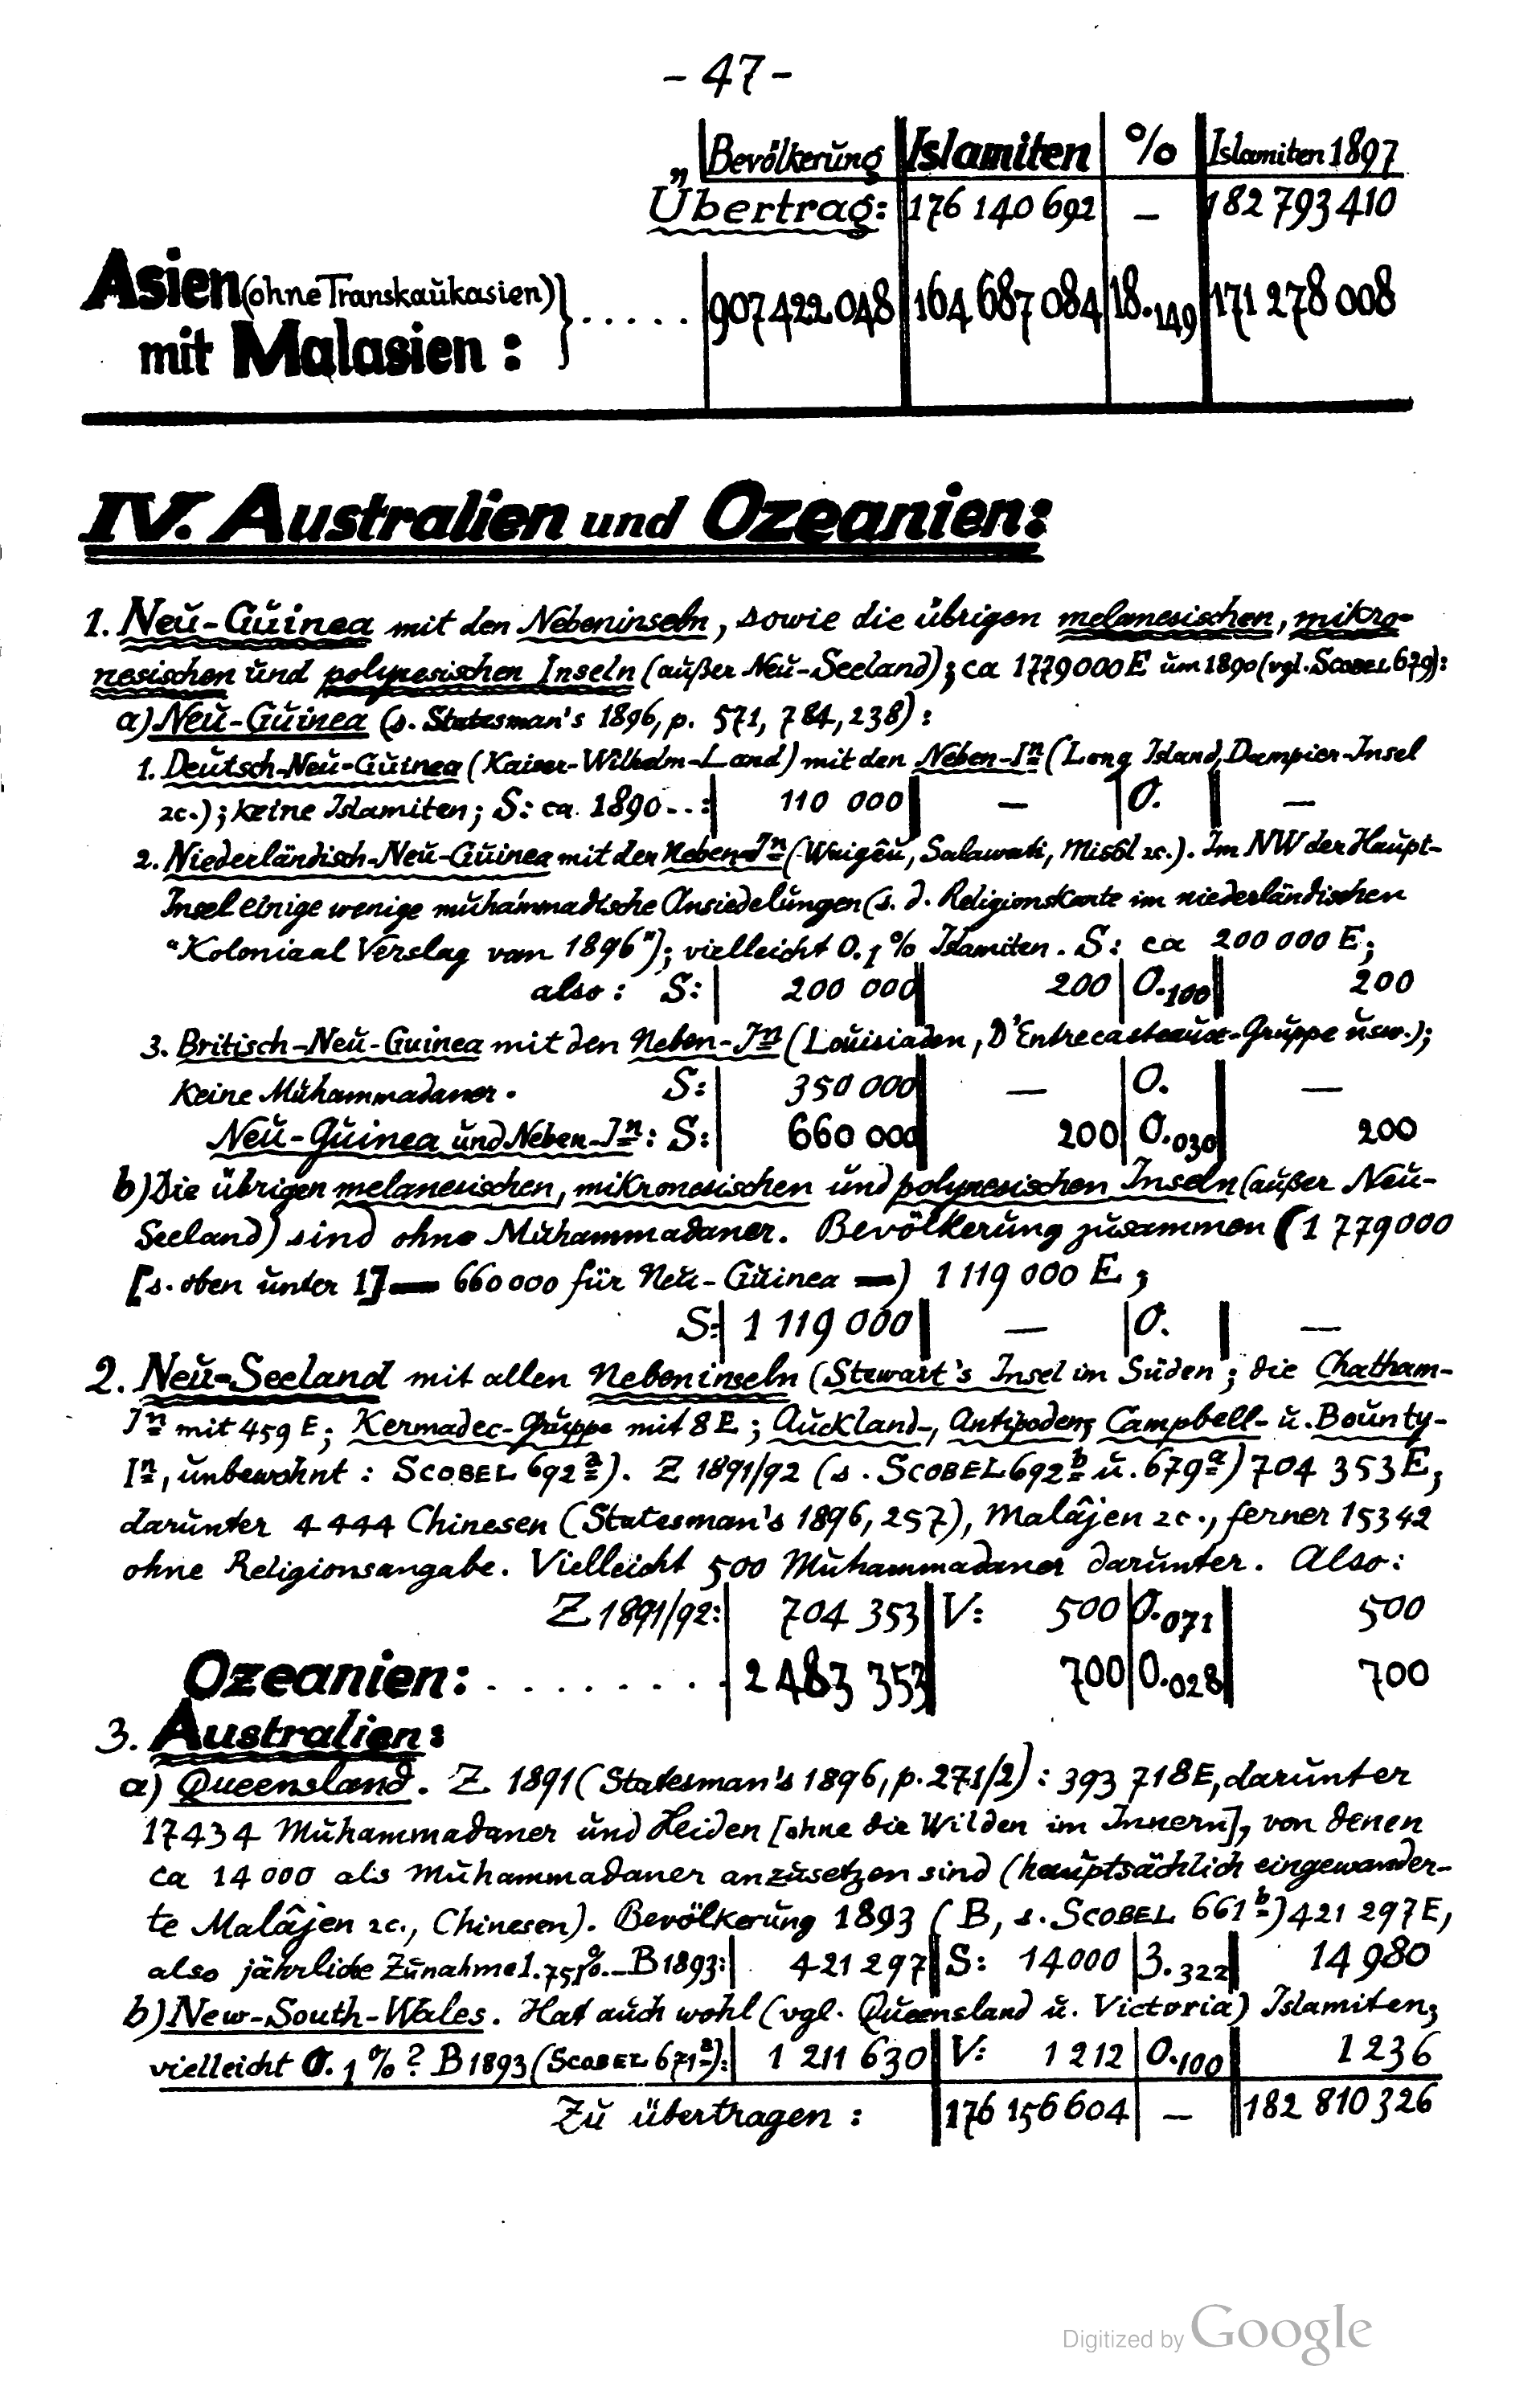 - 47 -
Bevölkerung | Islamiten | % | Islamiten 1897
Übertrag: | 176 140 692 | — | 182 793 410
Asien (ohne Transkaukasien)
mit Malasien: } ..... | 907 422 048 | 164 687 084 | 18.149 | 171 278 008
IV. Australien und Ozeanien:
1. Neu-Guinea mit den Nebeninseln, sowie die übrigen melanesischen, mikro-
nesischen und polynesischen Inseln (außer Neu-Seeland); ca 1779000 E um 1890 (vgl. SCOBEL 679):
a) Neu-Guinea (s. Statesman's 1896, p. 571, 784, 238):
1. Deutsch-Neu-Guinea (Kaiser-Wilhelm-Land) mit den Neben-Iⁿ (Long Island, Dampier-Insel
2c.); keine Islamiten; S: ca. 1890 ..: | 110 000 | — | 0. | —
2. Niederländisch-Neu-Guinea mit den Neben-Iⁿ (Waigêu, Salawati, Misôl 2c.). Im NW der Haupt-
Insel einige wenige muhammadische Ansiedelungen (s. d. Religionskarte im niederländischen
"Koloniaal Verslag van 1896"); vielleicht 0.1% Islamiten. S: ca 200 000 E;
also: S: | 200 000 | 200 | 0.100 | 200
3. Britisch-Neu-Guinea mit den Neben-Iⁿ (Louisiaden, D'Entrecasteaux-Gruppe usw.);
Keine Muhammadaner. S: | 350 000 | — | 0. | —
Neu-Guinea und Neben-Iⁿ: S: | 660 000 | 200 | 0.030 | 200
b) Die übrigen melanesischen, mikronesischen und polynesischen Inseln (außer Neu-
Seeland) sind ohne Muhammadaner. Bevölkerung zusammen (1 779 000
[s. oben unter 1] — 660 000 für Neu-Guinea —) 1 119 000 E;
S: | 1 119 000 | — | 0. | —
2. Neu-Seeland mit allen Nebeninseln (Stewart's Insel im Süden; die Chatham-
Iⁿ mit 459 E; Kermadec-Gruppe mit 8 E; Auckland-, Antipoden, Campbell- u. Bounty-
Iⁿ, unbewohnt: SCOBEL 692ᵃ). Z 1891/92 (s. SCOBEL 692ᵇ u. 679ᵃ) 704 353 E,
darunter 4 444 Chinesen (Statesman's 1896, 257), Malâjen 2c., ferner 15342
ohne Religionsangabe. Vielleicht 500 Muhammadaner darunter. Also:
Z 1891/92: | 704 353 | V: 500 | 0.071 | 500
Ozeanien: ........ | 2 483 353 | 700 | 0.028 | 700
3. Australien:
a) Queensland. Z 1891 (Statesman's 1896, p. 271/2): 393 718 E, darunter
17434 Muhammadaner und Heiden [ohne die Wilden im Innern], von denen
ca 14 000 als Muhammadaner anzusetzen sind (hauptsächlich eingewander-
te Malâjen 2c., Chinesen). Bevölkerung 1893 (B, s. SCOBEL 661ᵇ) 421 297 E,
also jährliche Zunahme 1.751%. — B 1893: | 421 297 | S: 14000 | 3.322 | 14 980
b) New-South-Wales. Hat auch wohl (vgl. Queensland u. Victoria) Islamiten;
vielleicht 0.1%? B 1893 (SCOBEL 671ᵃ): | 1 211 630 | V: 1 212 | 0.100 | 1 236
Zu übertragen: | 176 156 604 | — | 182 810 326
Digitized by Google